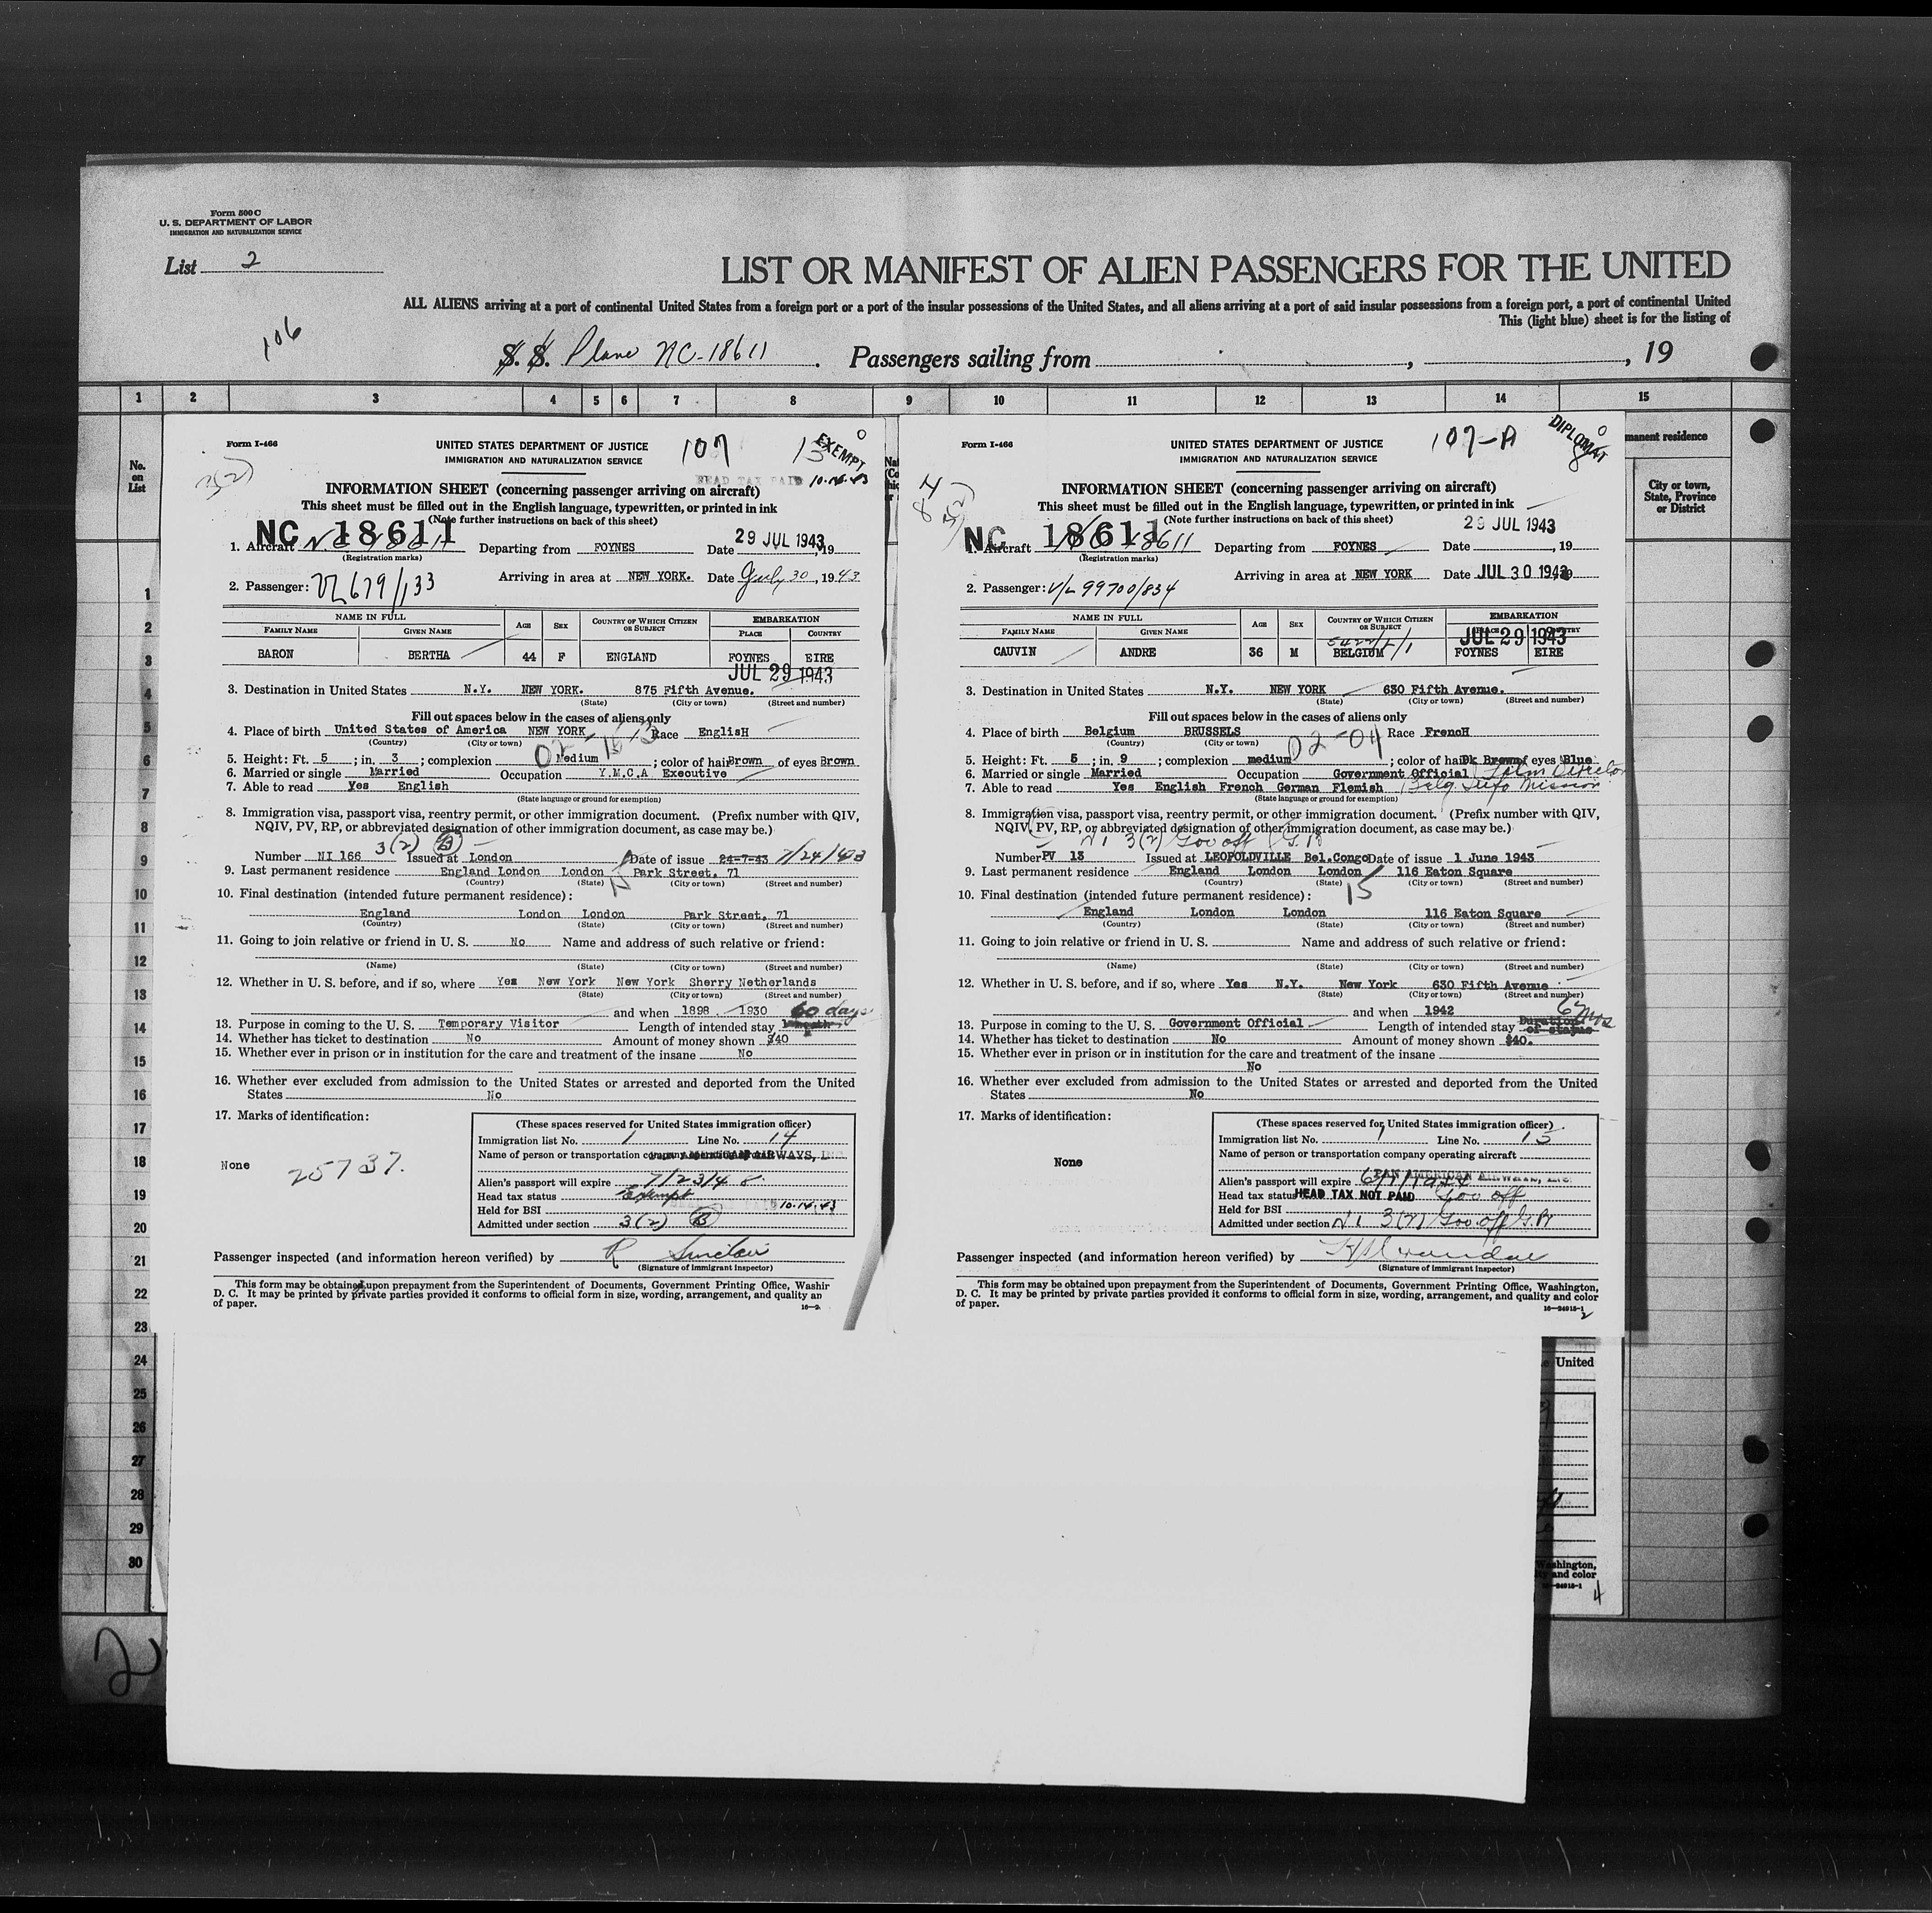 Form 500 C
U. S. DEPARTMENT OF LABOR
IMMIGRATION AND NATURALIZATION SERVICE
List 2
LIST OR MANIFEST OF ALIEN PASSENGERS FOR THE UNITED
ALL ALIENS arriving at a port of continental United States from a foreign port or a port of the insular possessions of the United States, and all aliens arriving at a port of said insular possessions from a foreign port, a port of continental United
This (light blue) sheet is for the listing of
106
S. S. Plane NC-18611. Passengers sailing from , , 19
1 2 3 4 5 6 7 8 9 10 11 12 13 14 15
No. on List
manent residence
City or town, State, Province or District
Form I-466
UNITED STATES DEPARTMENT OF JUSTICE
IMMIGRATION AND NATURALIZATION SERVICE
107
13
EXEMPT
3(2)
HEAD TAX PAID 10-14-43
INFORMATION SHEET (concerning passenger arriving on aircraft)
This sheet must be filled out in the English language, typewritten, or printed in ink
(Note further instructions on back of this sheet)
NC 18611
1. Aircraft NC 18611 Departing from FOYNES Date 29 JUL 1943, 19
(Registration marks)
Arriving in area at NEW YORK. Date July 30, 1943
2. Passenger: 679/133
NAME IN FULL AGE SEX COUNTRY OF WHICH CITIZEN OR SUBJECT EMBARKATION
FAMILY NAME GIVEN NAME PLACE COUNTRY
BARON BERTHA 44 F ENGLAND FOYNES EIRE
JUL 29 1943
3. Destination in United States N.Y. NEW YORK. 875 Fifth Avenue.
(State) (City or town) (Street and number)
Fill out spaces below in the cases of aliens only
4. Place of birth United States of America NEW YORK Race EnglisH
(Country) (City or town)
5. Height: Ft. 5 ; in. 3 ; complexion Medium ; color of hair Brown of eyes Brown
6. Married or single Married Occupation Y.M.C.A Executive
7. Able to read Yes English
(State language or ground for exemption)
8. Immigration visa, passport visa, reentry permit, or other immigration document. (Prefix number with QIV,
NQIV, PV, RP, or abbreviated designation of other immigration document, as case may be.)
3(2) B
Number NI 166 Issued at London Date of issue 24-7-43 7/24/43
9. Last permanent residence England London London Park Street. 71
(Country) (State) (City or town) (Street and number)
10. Final destination (intended future permanent residence):
England London London Park Street, 71
(Country) (State) (City or town) (Street and number)
11. Going to join relative or friend in U. S. No Name and address of such relative or friend:
(Name) (State) (City or town) (Street and number)
12. Whether in U. S. before, and if so, where Yes New York New York Sherry Netherlands
(State) (City or town) (Street and number)
and when 1898 1930 60 days
13. Purpose in coming to the U. S. Temporary Visitor Length of intended stay
14. Whether has ticket to destination No Amount of money shown $40
15. Whether ever in prison or in institution for the care and treatment of the insane No
16. Whether ever excluded from admission to the United States or arrested and deported from the United
States No
17. Marks of identification:
None
25737.
(These spaces reserved for United States immigration officer)
Immigration list No. 1 Line No. 14
Name of person or transportation company AIRWAYS, INC.
Alien's passport will expire 7/23/48
Head tax status Exempt
Held for BSI 10-14-43
Admitted under section 3(2) B
Passenger inspected (and information hereon verified) by R Sinclair
(Signature of immigrant inspector)
This form may be obtained upon prepayment from the Superintendent of Documents, Government Printing Office, Washir
D. C. It may be printed by private parties provided it conforms to official form in size, wording, arrangement, and quality an
of paper.
Form I-466
UNITED STATES DEPARTMENT OF JUSTICE
IMMIGRATION AND NATURALIZATION SERVICE
107-A
DIPLOMAT
3(2)
INFORMATION SHEET (concerning passenger arriving on aircraft)
This sheet must be filled out in the English language, typewritten, or printed in ink
(Note further instructions on back of this sheet)
NC 18611
1. Aircraft NC 18611 Departing from FOYNES Date 29 JUL 1943, 19
(Registration marks)
Arriving in area at NEW YORK Date JUL 30 1943
2. Passenger: V/L 99700/834
NAME IN FULL AGE SEX COUNTRY OF WHICH CITIZEN OR SUBJECT EMBARKATION
FAMILY NAME GIVEN NAME PLACE COUNTRY
JUL 29 1943
CAUVIN ANDRE 36 M BELGIUM FOYNES EIRE
3. Destination in United States N.Y. NEW YORK 630 Fifth Avenue.
(State) (City or town) (Street and number)
Fill out spaces below in the cases of aliens only
4. Place of birth Belgium BRUSSELS Race FrencH
(Country) (City or town)
02-04
5. Height: Ft. 5 ; in. 9 ; complexion medium ; color of hair Dk Brown of eyes Blue
6. Married or single Married Occupation Government Official Film Director
7. Able to read Yes English French German Flemish Belg. Info Mission
(State language or ground for exemption)
8. Immigration visa, passport visa, reentry permit, or other immigration document. (Prefix number with QIV,
NQIV, PV, RP, or abbreviated designation of other immigration document, as case may be.)
3(2) Gov off
Number PV 13 Issued at LEOPOLDVILLE Bel.Congo Date of issue 1 June 1943
9. Last permanent residence England London London 116 Eaton Square
(Country) (State) (City or town) (Street and number)
15
10. Final destination (intended future permanent residence):
England London London 116 Eaton Square
(Country) (State) (City or town) (Street and number)
11. Going to join relative or friend in U. S. Name and address of such relative or friend:
(Name) (State) (City or town) (Street and number)
12. Whether in U. S. before, and if so, where Yes N.Y. New York 630 Fifth Avenue
(State) (City or town) (Street and number)
and when 1942 6 mos
13. Purpose in coming to the U. S. Government Official Length of intended stay Duration of status
14. Whether has ticket to destination No Amount of money shown $40.
15. Whether ever in prison or in institution for the care and treatment of the insane
No
16. Whether ever excluded from admission to the United States or arrested and deported from the United
States No
17. Marks of identification:
None
(These spaces reserved for United States immigration officer)
Immigration list No. 1 Line No. 15
Name of person or transportation company operating aircraft
PAN AMERICAN AIRWAYS, INC.
Alien's passport will expire
Head tax status HEAD TAX NOT PAID Gov off
Held for BSI
Admitted under section 3(2) Gov off
Passenger inspected (and information hereon verified) by
(Signature of immigrant inspector)
This form may be obtained upon prepayment from the Superintendent of Documents, Government Printing Office, Washington,
D. C. It may be printed by private parties provided it conforms to official form in size, wording, arrangement, and quality and color
of paper.
16—24915-1
2
1
2
3
4
5
6
7
8
9
10
11
12
13
14
15
16
17
18
19
20
21
22
23
24
25
26
27
28
29
30
United
Washington,
and color
4
2